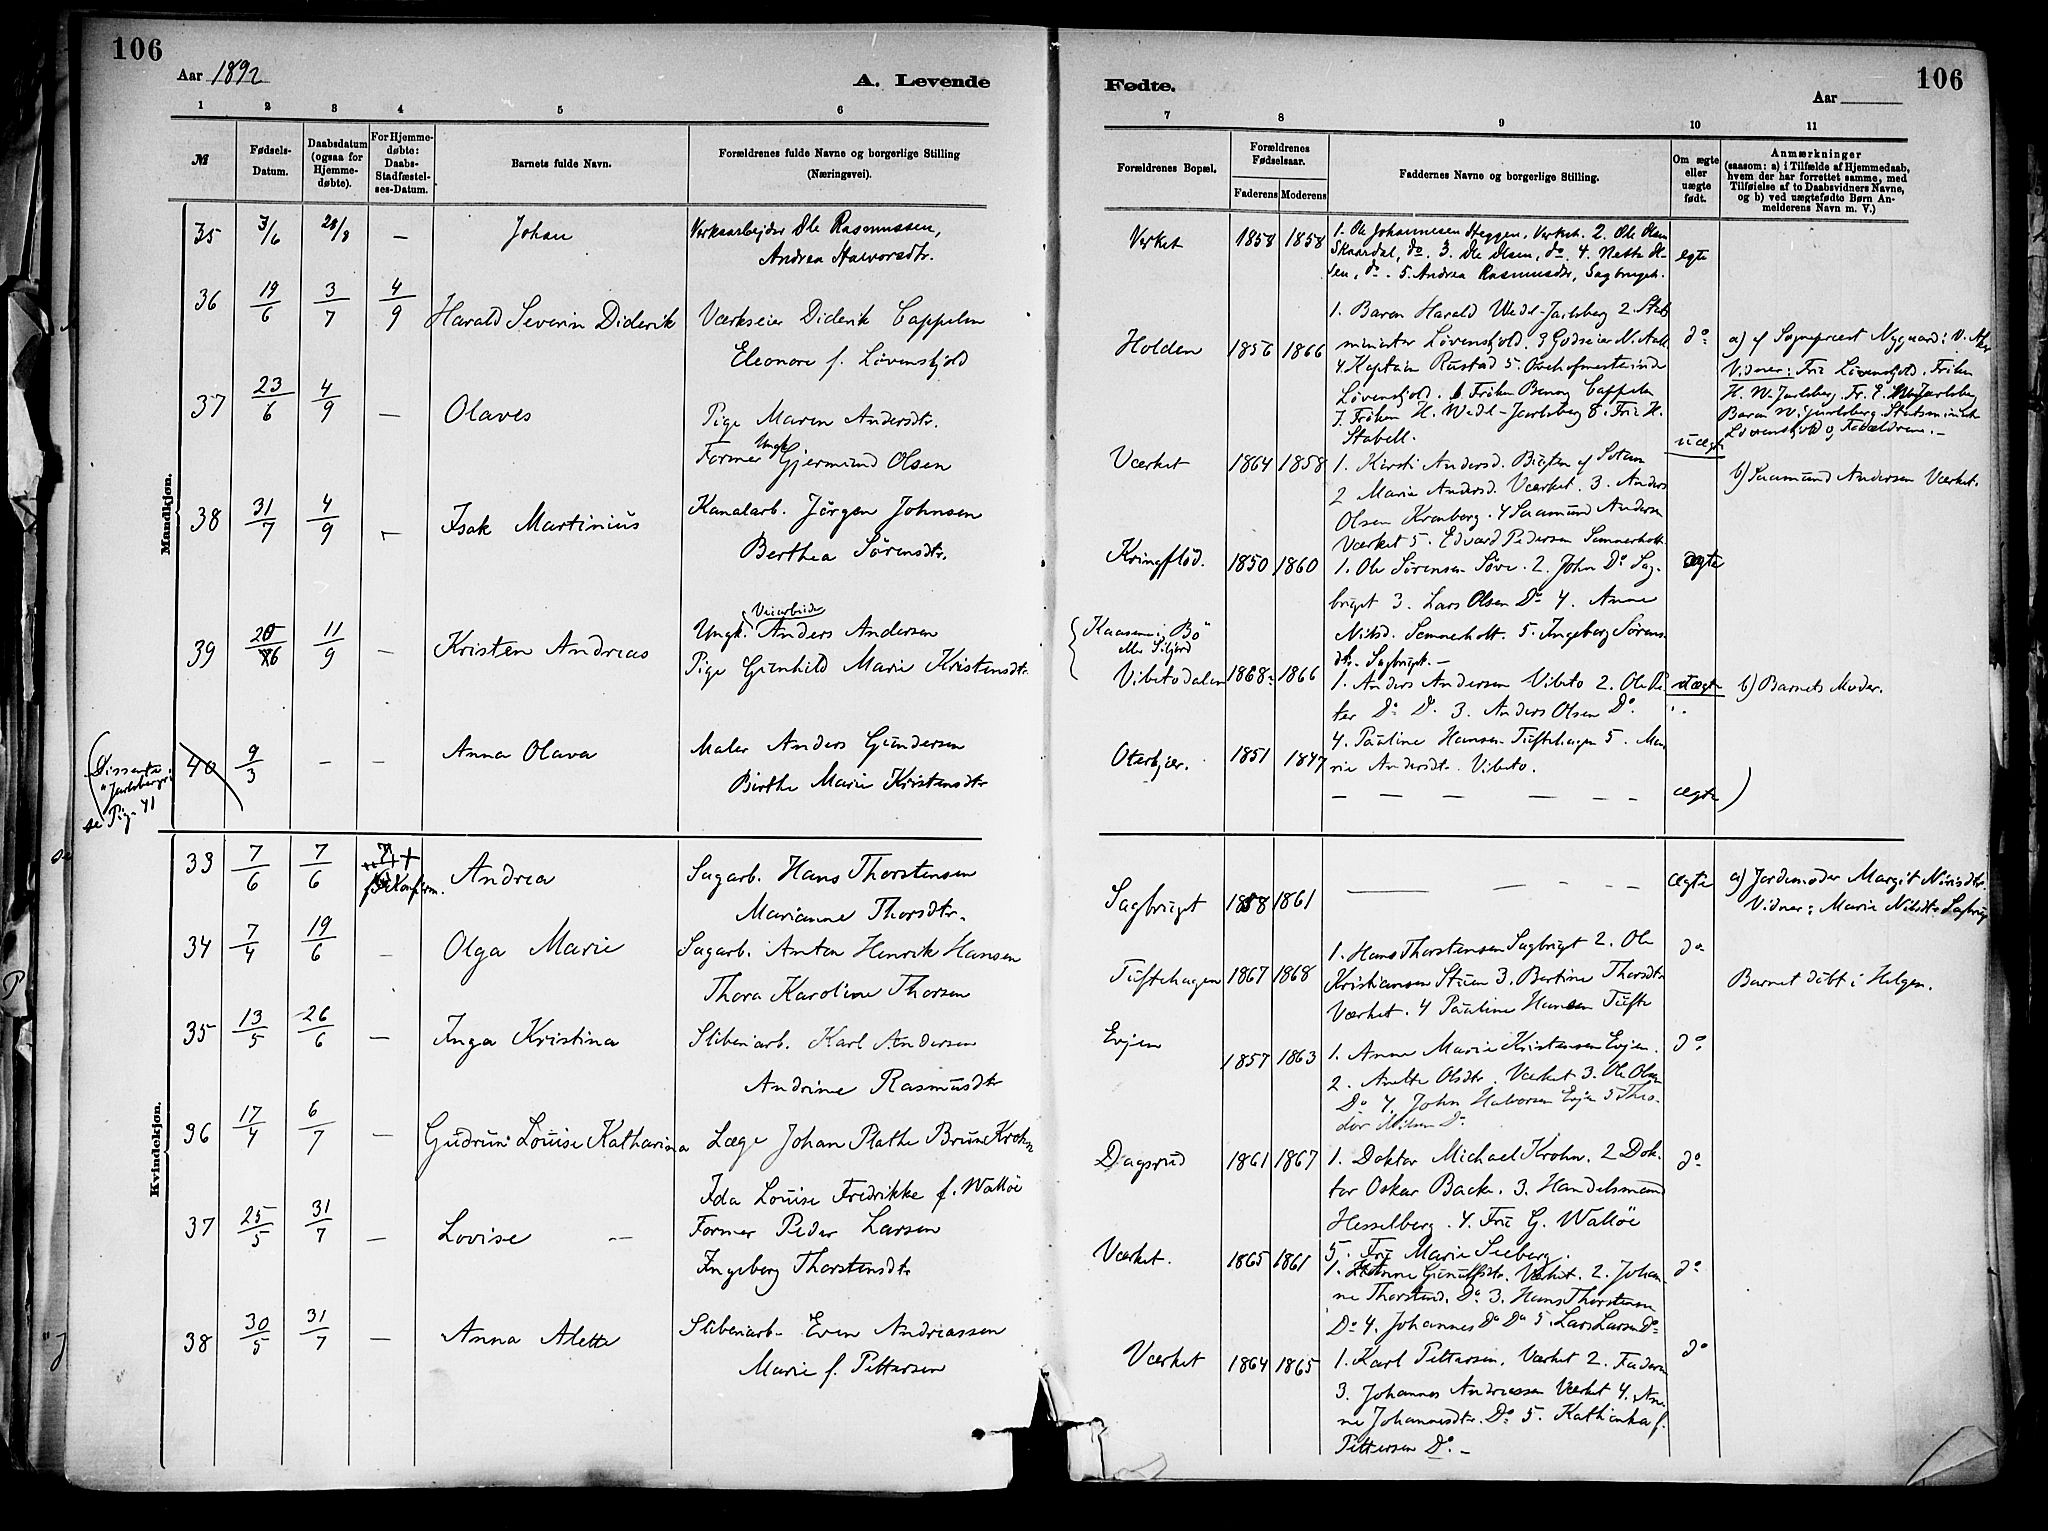 106
Aar 1892
A. Levende
1 2 3 4 5 6
№
Fødsels-
Datum.
Daabsdatum
(ogsaa for
Hjemme-
døbte).
For Hjemme-
døbte:
Daabs-
Stadfæstel-
ses-Datum.
Barnets fulde Navn.
Forældrenes fulde Navne og borgerlige Stilling
(Næringsvei).
Mandkjøn.
35 3/6 28/8 — Johan Verksarbejder Ole Rasmussen,
Andrea Halvorsdtr.
36 19/6 3/7 4/9 Harald Severin Diderik Værkseier Diderik Cappelen
Eleonore f. Løvenskjold
37 23/6 4/9 — Olaves Pige Maren Andersdtr.
Former Ungk. Gjermund Olsen
38 31/7 4/9 - Isak Martinius Kanalarb. Jørgen Johnsen
Berthea Sørensdtr.
Veiarbeider
39 20/6 11/9 — Kristen Andreas Ungk. Anders Andersen
Pige Gunhild Marie Kristensdtr.
(Dissenter
Jarlsberg
se Pig. 41
40 9/3 — — Anna Olava Maler Anders Gundersen
Birthe Marie Kristensdtr
Kvindekjøn.
33 7/6 7/6 Andrea Sagarb. Hans Thorstensen
Marianne Thorsdtr.
34 7/4 19/6 — Olga Marie Sagarb. Anton Henrik Hansen
Thora Karoline Thorsen
35 13/5 26/6 — Inga Kristina Sliberiarb. Karl Andersen
Andrine Rasmusdtr
36 17/4 6/7 — Gudrun Louise Katharina Læge Johan Plathe Brune Krohn
Ida Louise Fredrikke f. Walløe
37 25/5 31/7 — Lovise — Former Peder Larsen
Ingeborg Thorstensdtr
38 30/5 31/7 — Anna Alette Sliberiarb. Even Andreassen
Marie f. Pettersen
Fødte.
Aar
106
7 8 9 10 11
Forældrenes Bopæl.
Forældrenes
Fødselsaar.
Faderens Moderens
Faddernes Navne og borgerlige Stilling.
Om ægte
eller
uægte
født.
Anmærkninger
(saasom: a) i Tilfælde af Hjemmedaab,
hvem der har forrettet samme, med
Tilføielse af to Daabsvidners Navne,
og b) ved uægtefødte Børn An-
melderens Navn m. V.)
Verket 1858 1858 1. Ole Johannesen Heggen, Verket. 2. Ole Olsen
Skaardal, do. 3. Ole Olsen, do. 4. Nette
sen, do. 5. Andrea Rasmusdtr, Sagbruget.
egte
Holden 1856 1866 1. Baron Harald Wedel-Jarlsberg 2 Stats
minister Løvenskjold. 3 Godseier N. Aall
4. Kaptain Rustad 5. Overhofmesterinde
Løvenskjold. 6 Frøken Benny Cappelen
7. Frøken H. Wedel-Jarlsberg 8. Fru H.
Stabell.
do
a) af Sognepræst Nygaard: V. Aker
Vidner: Fru Løvenskjold. Frøken
H. W. Jarlsberg. Fr. E. Wedel Jarlsberg
Baron W. Jarlsberg Statsminister
Løvenskjold og Forældrene.—
Værket 1864 1858 1. Kirsti Andersd. Bugten af
2 Marie Andersd. Værket. 3. Anders
Olsen Kronberg. 4 Saamund Andersen
Værket 5. Edvard Pedersen Semmerholt
uægte
b) Saamund Andersen Værket.
Kringflod. 1850 1860 1. Ole Sørensen Søve. 2. John Do Sag-
bruget 3. Lars Olsen Do 4. Anne
Nilsd. Semmerholt. 5. Ingeborg Sørens
dtr. Sagbruget.—
ægte
Kaasene i Bø
eller Siljord
Vibetodalen 1868 1866 1. Anders Andersen Vibeto 2. Ole Pe
ter Do Do 3. Anders Olsen Do.
4. Pauline Hansen Tuftehagen 5. Ma
rie Andersdtr. Vibeto.
uægte
b) Barnets Moder.
Oterkjær. 1851 1847
— — — — — — ægte )
Sagbruget 1858 1861 — — — — ægte a) Jordemoder Margit Nirisdtr.
Vidner: Marie Nilsdtr Sagbrug
Tuftehagen 1867 1868 1. Hans Thorstensen Sagbruget 2. Ole
Kristiansen Stuen 3. Bertine Thorsdtr
Værket. 4 Pauline Hansen Tufte
do
Barnet døbt i Helgen.
Evjen 1857 1863 1. Anne Marie Kristensen Evjen.
2. Anette Olsdtr. Værket 3. Ole Olsen
Do 4. John Halvorsen Evjen 5 Theo-
dor Nilsen Do
do
Dagsrud 1861 1867 1. Doktor Michael Krohn. 2 Dok-
tor Oskar Backe. 3. Handelsmand
Hesselberg. 4. Fru G. Walløe
5. Fru Marie Seeberg.
do
Værket. 1865 1861 1. Hanne Gunulfsdtr. Værket. 2. Johan-
ne Thorstensd. Do 3. Hans Thorstensen
Do 4. Johannes Do Do 5. Lars Larsen Do
do
Værket 1864 1865 1. Karl Pettersen, Værket 2. Faderen
3. Johannes Andreassen Værket 4. An-
ne Johannesdtr. Do 5. Kathinka f.
Pettersen Do.—
do